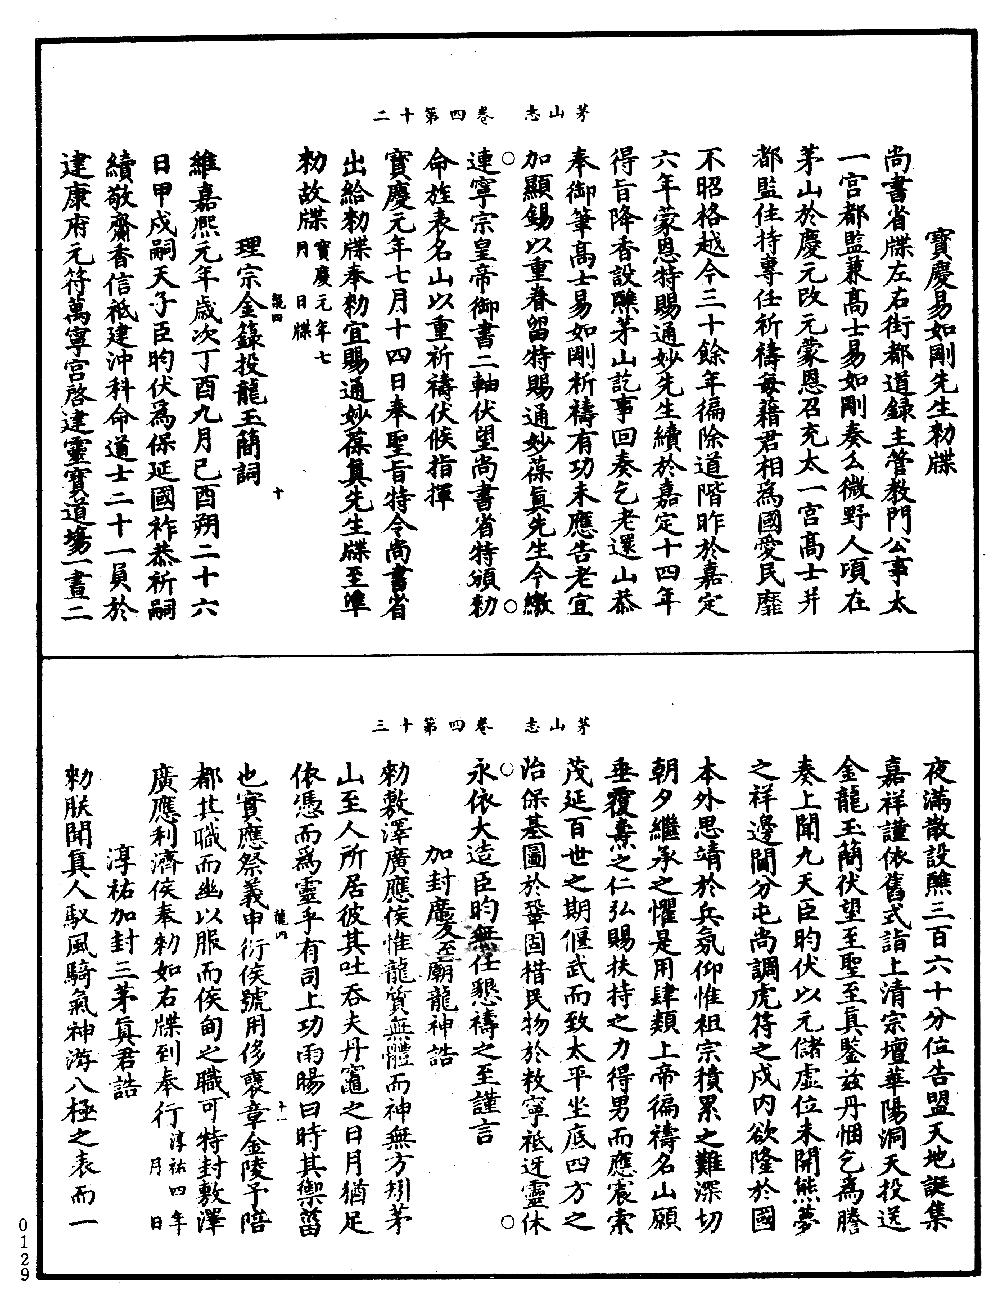 茅山志　卷四第十二
寶慶易如剛先生勑牒
尚書省牒左右街都道録主管教門公事太
一宫都監兼高士易如剛奏么微野人頃在
茅山於慶元改元蒙恩召充太一宫高士并
都監住持專任祈禱每藉君相爲國愛民靡
不昭格越今三十餘年徧除道階昨於嘉定
六年蒙恩特賜通妙先生續於嘉定十四年
得旨降香設醮茅山訖事回奏乞老還山恭
奉御筆高士易如剛祈禱有功未應告老宜
加顯錫以重眷留特賜通妙葆真先生今繳
連寧宗皇帝御書二軸伏望尚書省特頒勑
命旌表名山以重祈禱伏候指揮
寶慶元年七月十四日奉聖旨特令尚書省
出給勑牒奉勑宜賜通妙葆真先生牒至準
勑故牒寶慶元年七月　日牒
理宗金籙投龍玉簡詞
龍四　十
維嘉熙元年歲次丁酉九月己酉朔二十六
日甲戌嗣天子臣昀伏爲保延國祚恭祈嗣
續敬齋香信祗建沖科命道士二十一員於
建康府元符萬寧宫啓建靈寶道場一晝二
茅山志　卷四第十三
夜滿散設醮三百六十分位告盟天地誕集
嘉祥謹依舊式詣上清宗壇華陽洞天投送
金龍玉簡伏望至聖至真鑒兹丹悃乞爲騰
奏上聞九天臣昀伏以元儲虛位未開熊夢
之祥邊閫分屯尚調虎符之戍内欲隆於國
本外思靖於兵氛仰惟祖宗積累之難深切
朝夕繼承之懼是用肆類上帝徧禱名山願
垂覆燾之仁弘賜扶持之力得男而應震索
茂延百世之期偃武而致太平坐底四方之
治保基圖於鞏固措民物於敉寧祗迓靈休
永依大造臣昀無任懇禱之至謹言
加封慶至廟龍神誥
勑敷澤廣應侯惟龍質無體而神無方矧茅
山至人所居彼其吐吞夫丹竈之日月猶足
依憑而爲靈乎有司上功雨暘曰時其禦菑
也實應祭義申衍侯號用侈褒章金陵予陪
龍四　十一
都其職而幽以服而侯甸之職可特封敷澤
廣應利濟侯奉勑如右牒到奉行淳祐四年　月　日
淳祐加封三茅真君誥
勑朕聞真人馭風騎氣神游八極之表而一
0129